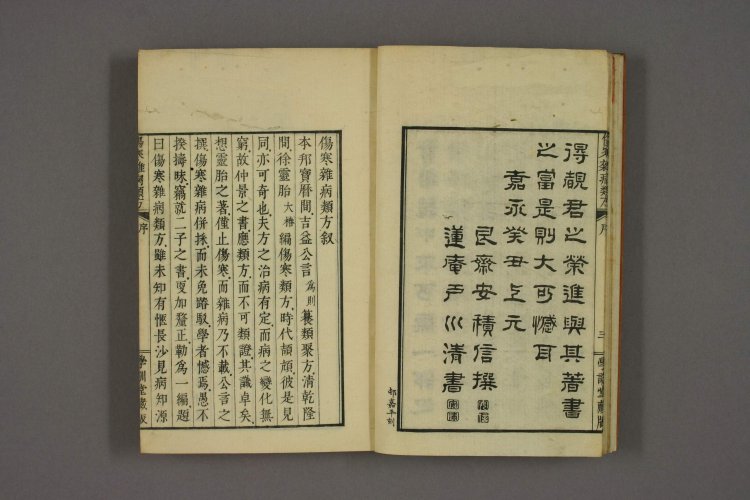 得覩君之榮進與其著書
之富是則大可憾耳
嘉永癸丑上元
艮齋安積信撰
蓮庵戸川清書
傷寒雜病類方
序
三
學訓堂藏版
郁嘉平刻
傷寒雜病類方叙
本邦寶曆間吉益公言為則纂類聚方清乾隆
間徐靈胎大椿編傷寒類方時代頡頏彼是見
同亦可奇也夫方之治病有定而病之變化無
窮故仲景之書應類方而不可類證其識卓矣
想靈胎之著僅止傷寒而雜病乃不載公言之
撰傷寒雜病併拯而未免踳駁學者憾焉愚不
揆擣昧竊就二子之書更加釐正勒為一編題
曰傷寒雜病類方雖未知有愜長沙見病知源
傷寒雜病類方
序
學訓堂藏版